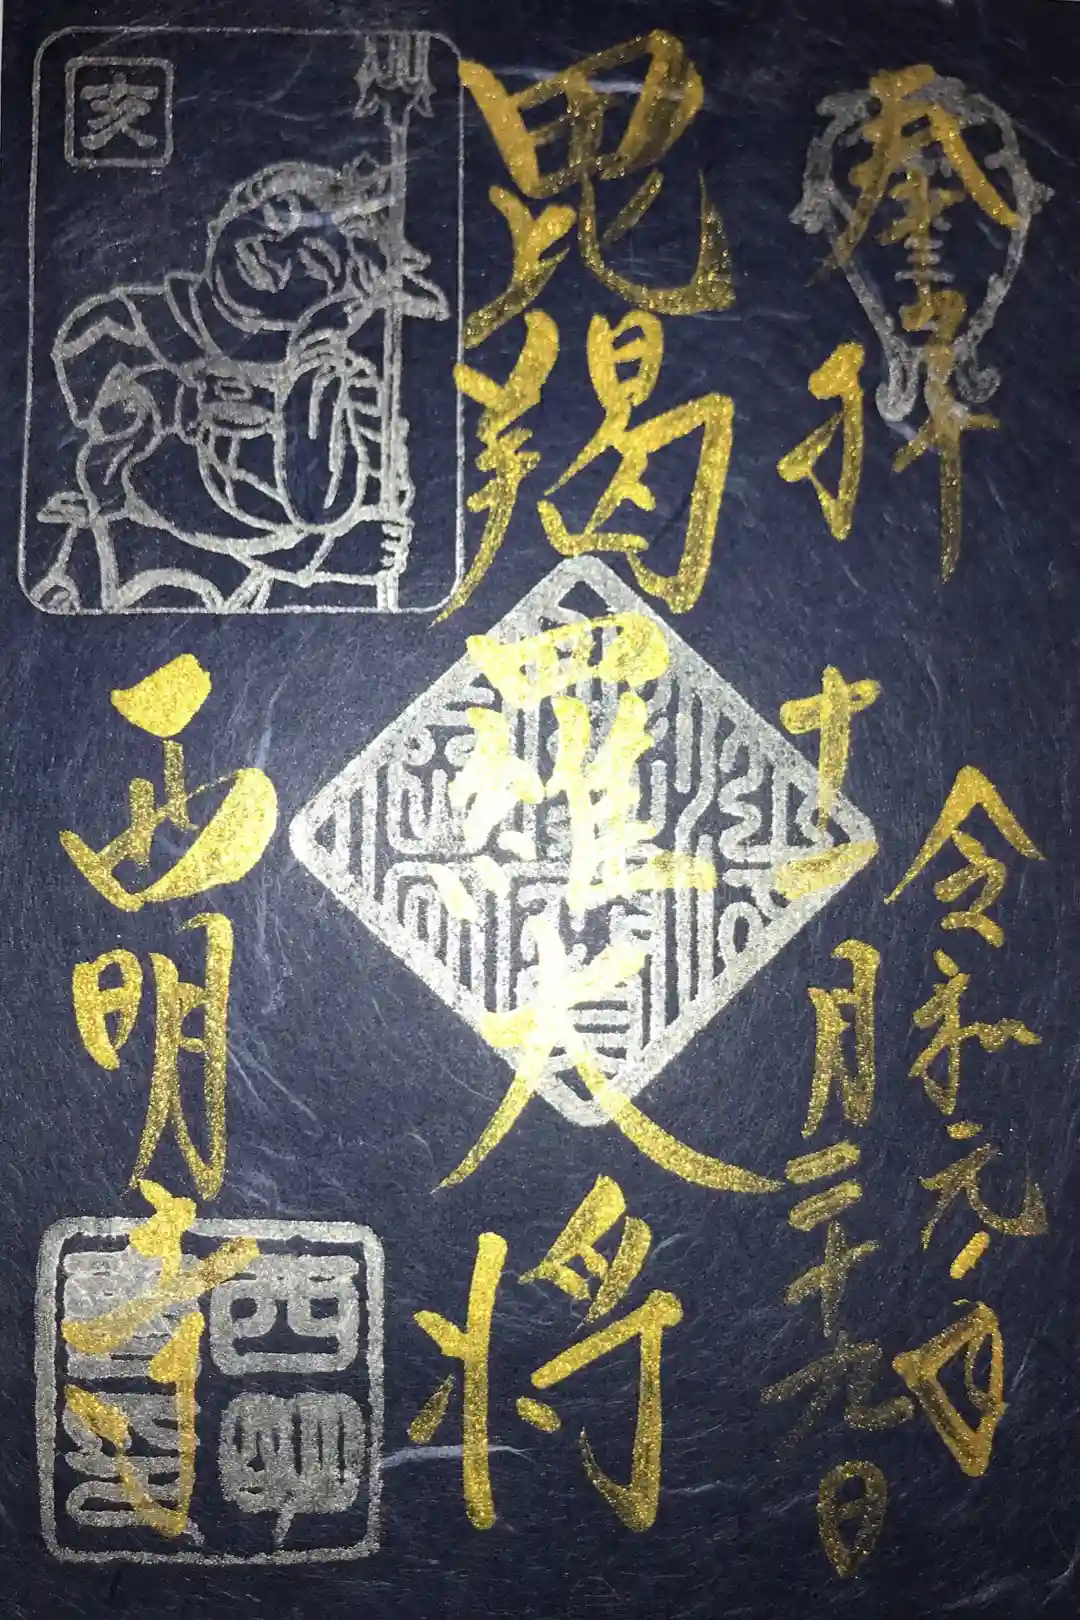 奉拝
令和元年
十一月二十九日
毘羯羅大将
亥
西明寺